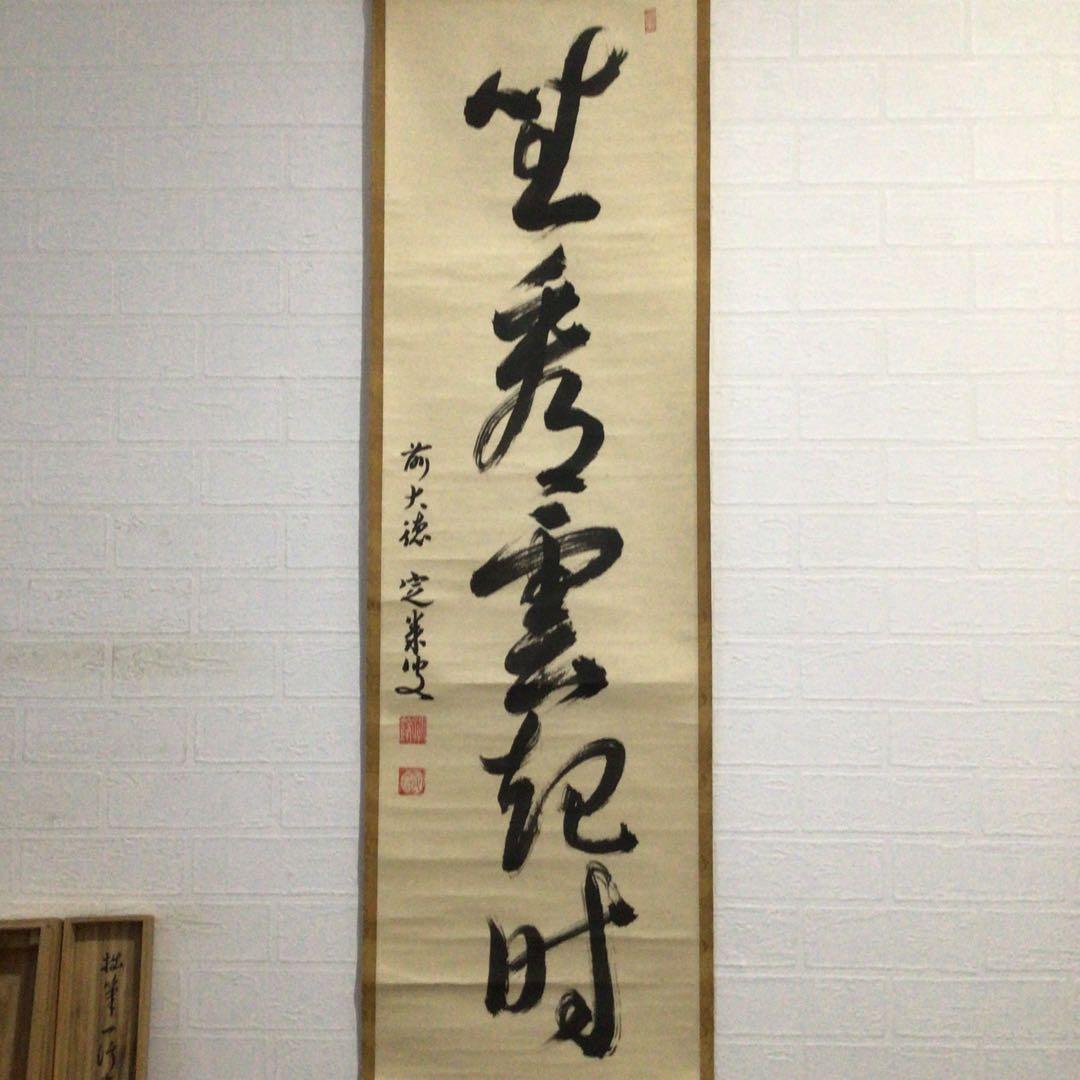 坐看雲起時
前大徳 定業叟
拙筆一行